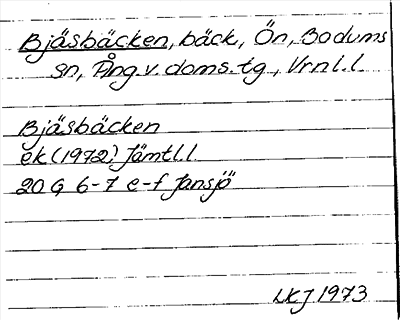 Bjäsbäcken, bäck, Ön, Bodums
sn, Ång. v. doms. tg, Vrnl. l.
Bjäsbäcken
ek (1972) Jämtl. l
20 G 6-7 e-f Jansjö
LKJ 1973